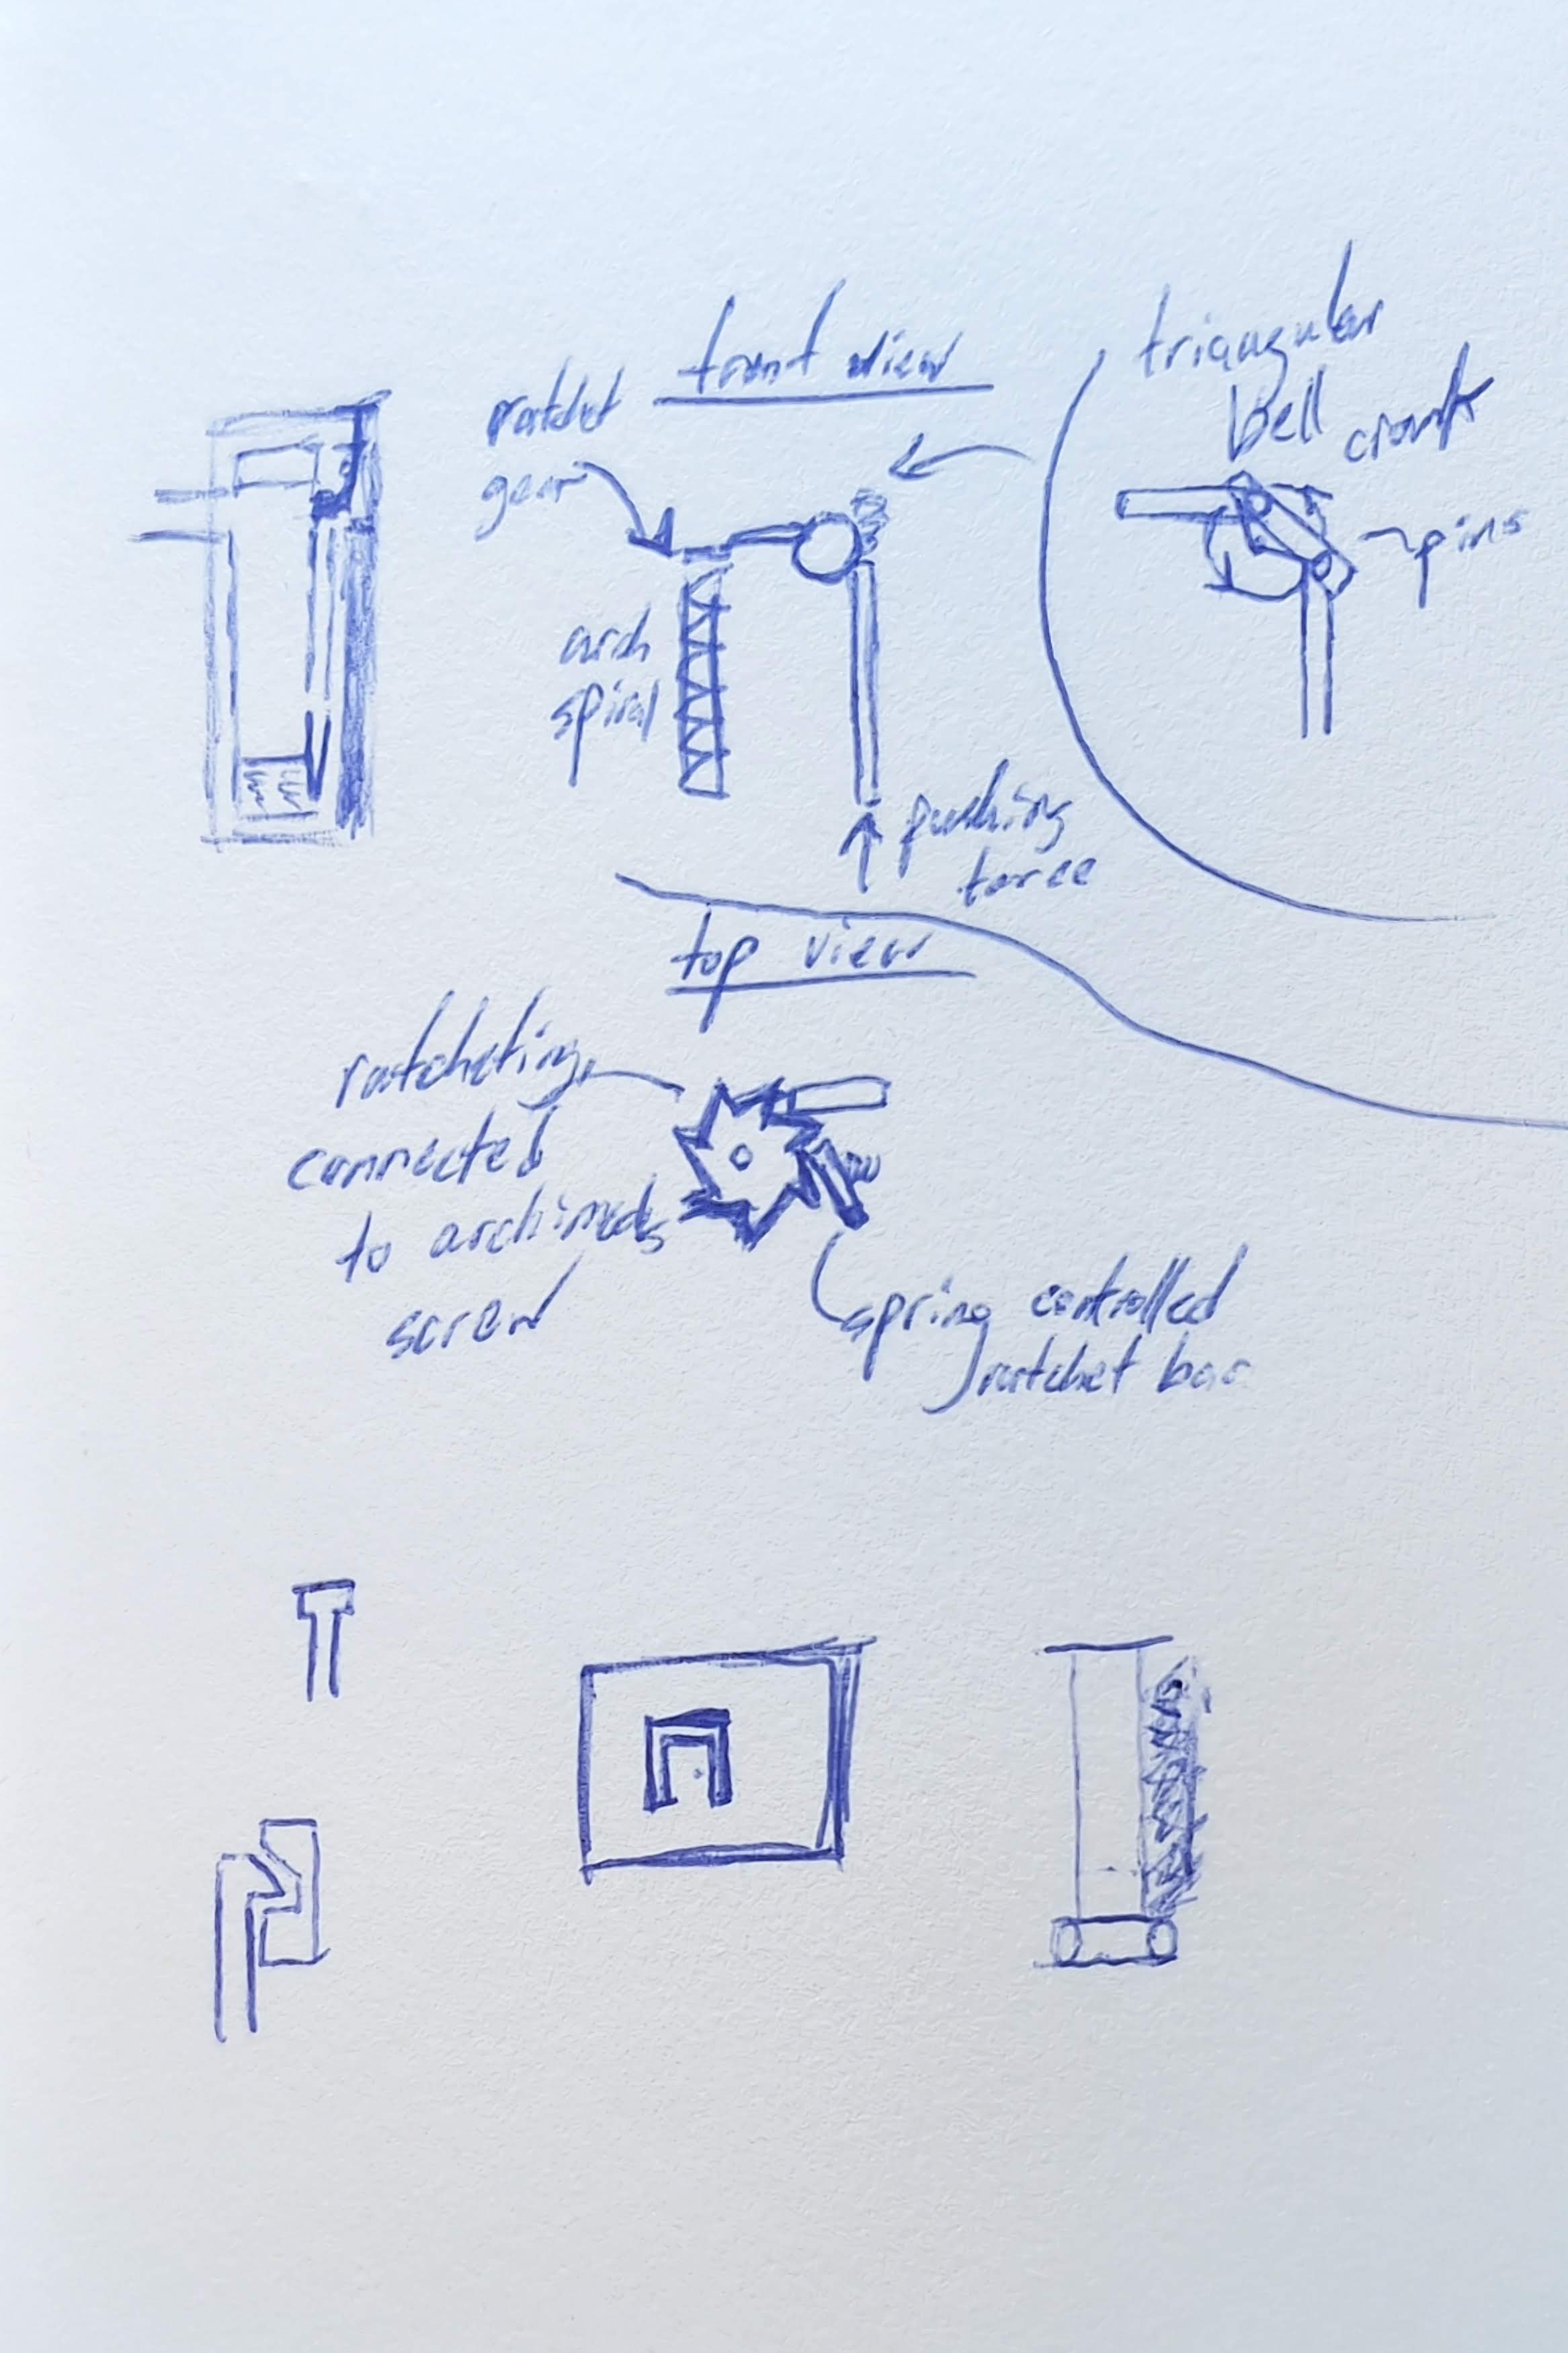 front view
ratchet
gear
arch
spiral
pushing
force
triangular
bell crank
pins
top view
ratcheting
connected
to archimeds
screw
spring controlled
ratchet bar